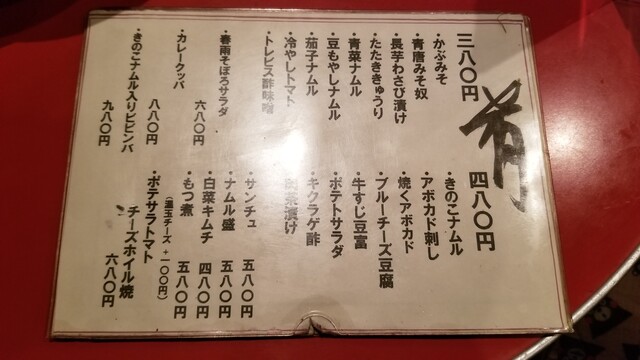 肴
三八〇円
・かぶみそ
・青唐みそ奴
・長芋わさび漬け
・たたききゅうり
・青菜ナムル
・豆もやしナムル
・茄子ナムル
・冷やしトマト
・トレビス酢味噌
・春雨そぼろサラダ
六八〇円
・カレークッパ
八八〇円
・きのこナムル入りビビンバ
九八〇円
四八〇円
・きのこナムル
・アボカド刺し
・焼くアボカド
・ブルーチーズ豆腐
・牛すじ豆富
・ポテトサラダ
・キクラゲ酢
漬け
・サンチュ 五八〇円
・ナムル盛 五八〇円
・白菜キムチ 四八〇円
・もつ煮 五八〇円
(温玉チーズ+一〇〇円)
・ポテサラトマト
チーズホイル焼
六八〇円